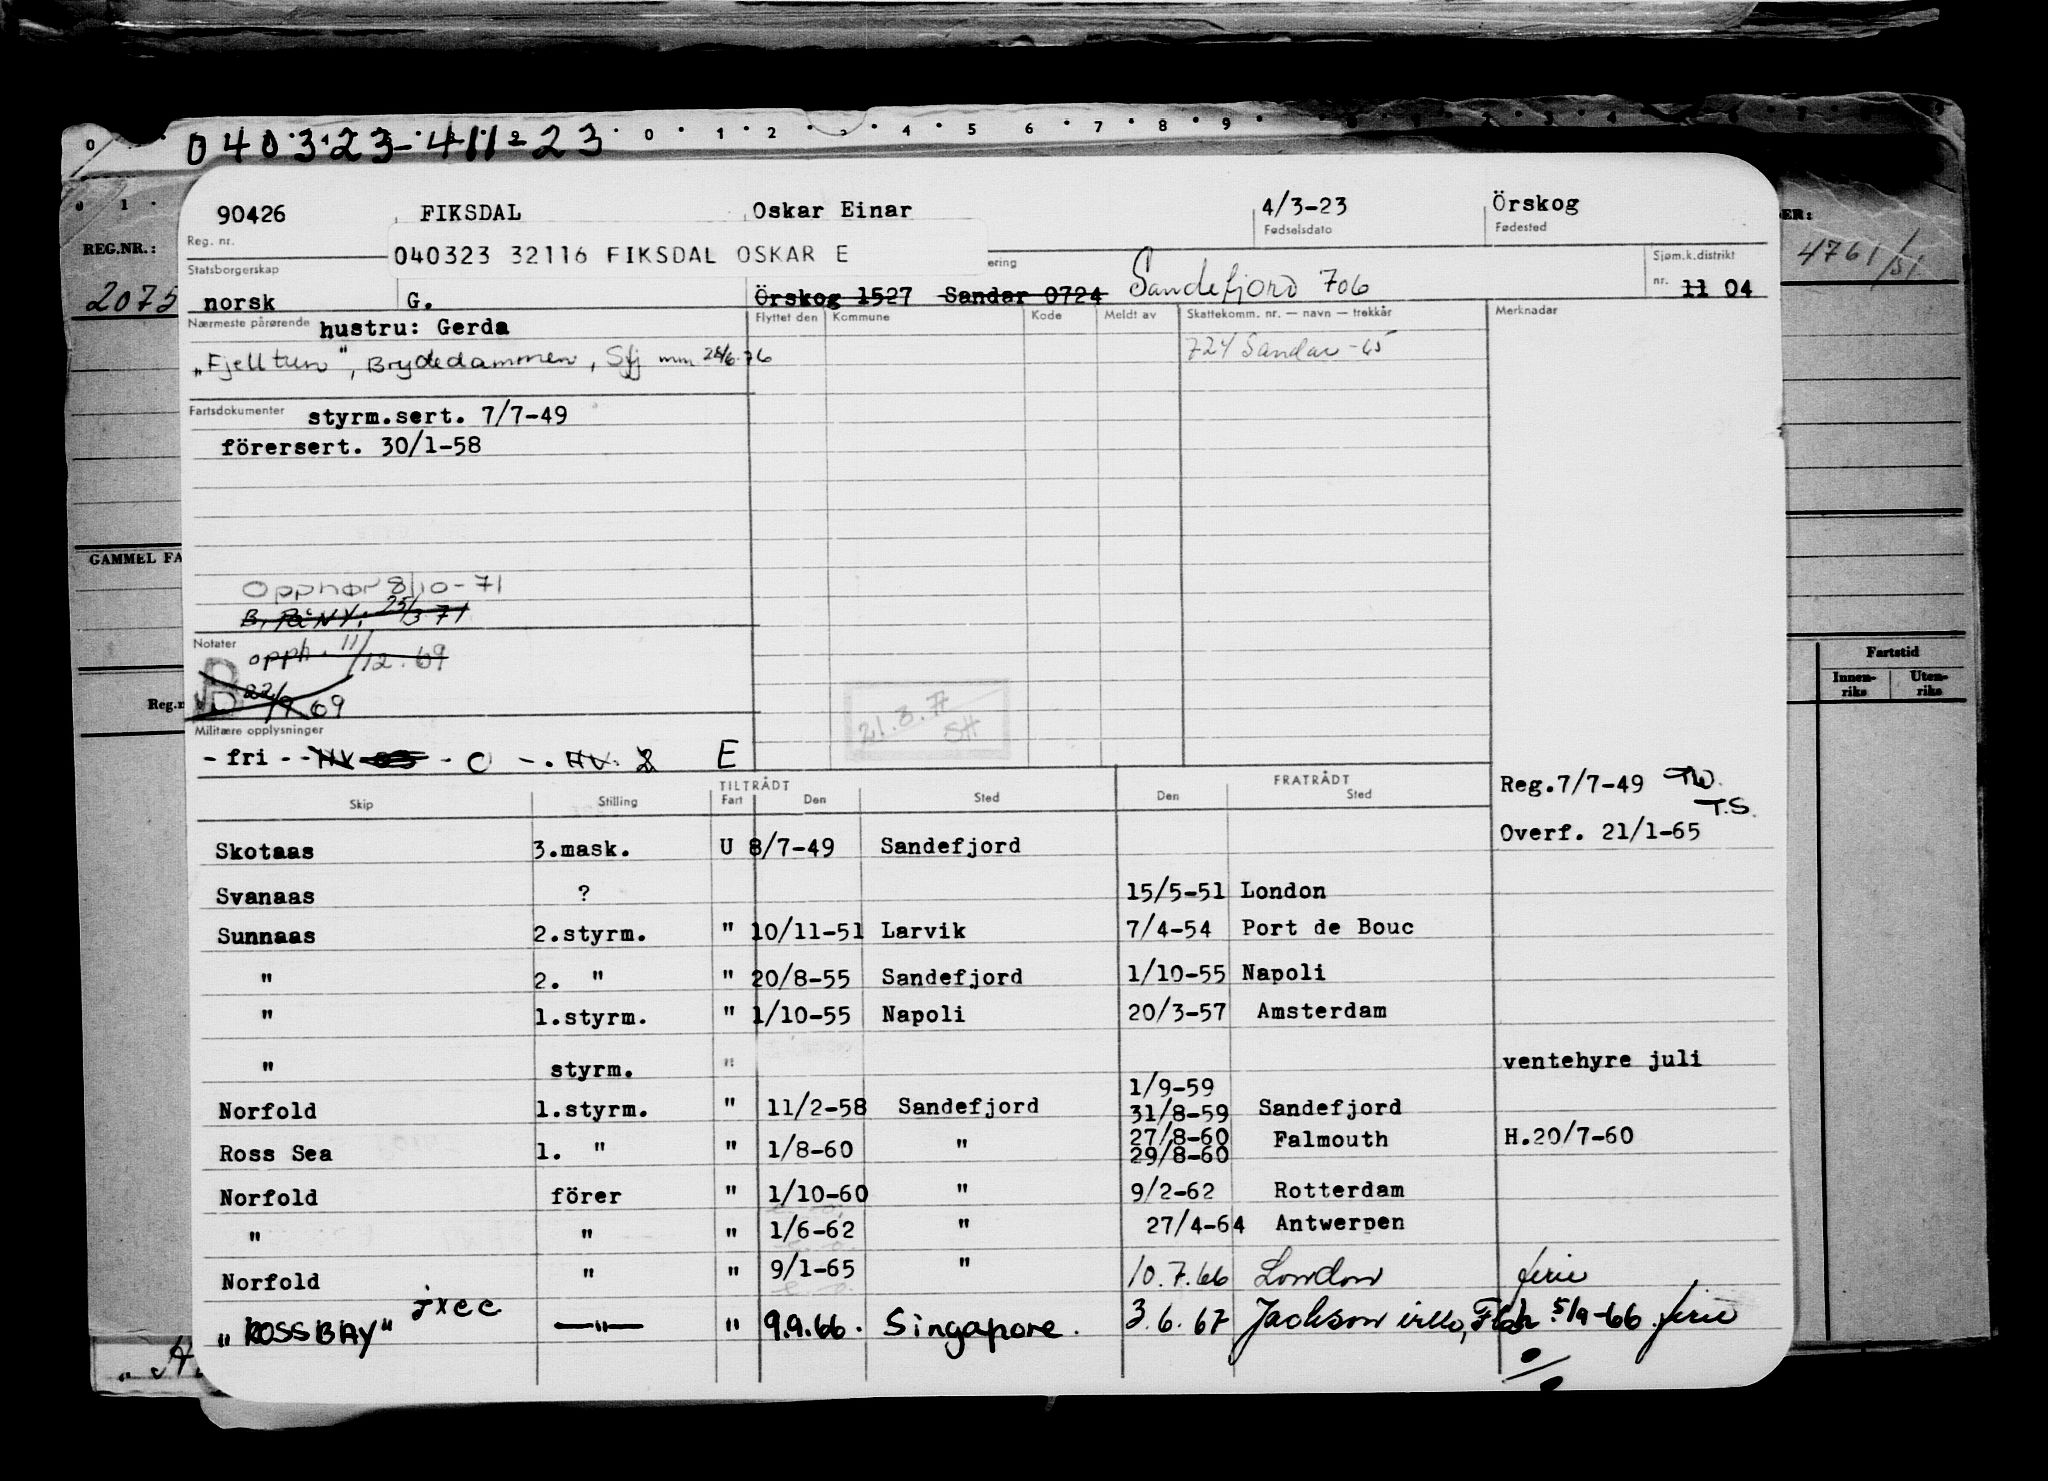 040323-411-23
0 1 2 3 4 5 6 7 8 9
REG.NR.:
2075
4761/51
GAMMEL FA
Reg.n
Fartstid
Innen-riks Uten-riks
90426 FIKSDAL Oskar Einar 4/3-23 Örskog
Reg. nr. Fødselsdato Fødested
040323 32116 FIKSDAL OSKAR E
Statsborgerskap ering Sjøm.k.distrikt
norsk G. Örskog 1527 Sandar 0724 Sandefjord 706 nr. 11 04
Nærmeste pårørende hustru: Gerda Flyttet den Kommune Kode Meldt av Skattekomm. nr. — navn — trekkår Merknadar
"Fjelltun", Brydedammen, Sfj mm 28/6-76 724 Sandar -65
Fartsdokumenter styrm.sert. 7/7-49
förersert. 30/1-58
Opphør 8/10-71
B. På NY: 25/3 71
Notater opph. 11/12.69
B 22/9 69
21.8.77 SH
Militære opplysninger
- fri - - HV - O - . HV. 2 E
Skip Stilling TILTRÅDT Fart Den Sted FRATRÅDT Den Sted
Reg.7/7-49 TW. T.S.
Overf. 21/1-65
Skotaas 3.mask. U 8/7-49 Sandefjord
Svanaas ? 15/5-51 London
Sunnaas 2.styrm. " 10/11-51 Larvik 7/4-54 Port de Bouc
" 2. " " 20/8-55 Sandefjord 1/10-55 Napoli
" 1.styrm. " 1/10-55 Napoli 20/3-57 Amsterdam
" styrm. " ventehyre juli
1/9-59
Norfold 1.styrm. " 11/2-58 Sandefjord 31/8-59 Sandefjord
27/8-60
Ross Sea 1. " " 1/8-60 " 29/8-60 Falmouth H.20/7-60
Norfold förer " 1/10-60 " 9/2-62 Rotterdam
" " " 1/6-62 " 27/4-64 Antwerpen
Norfold " " 9/1-65 " 10.7.66 London ferie
"ROSSBAY" jxcc —"— " 9.9.66. Singapore. 3.6.67 Jacksonville, Fla 5/9-66 ferie